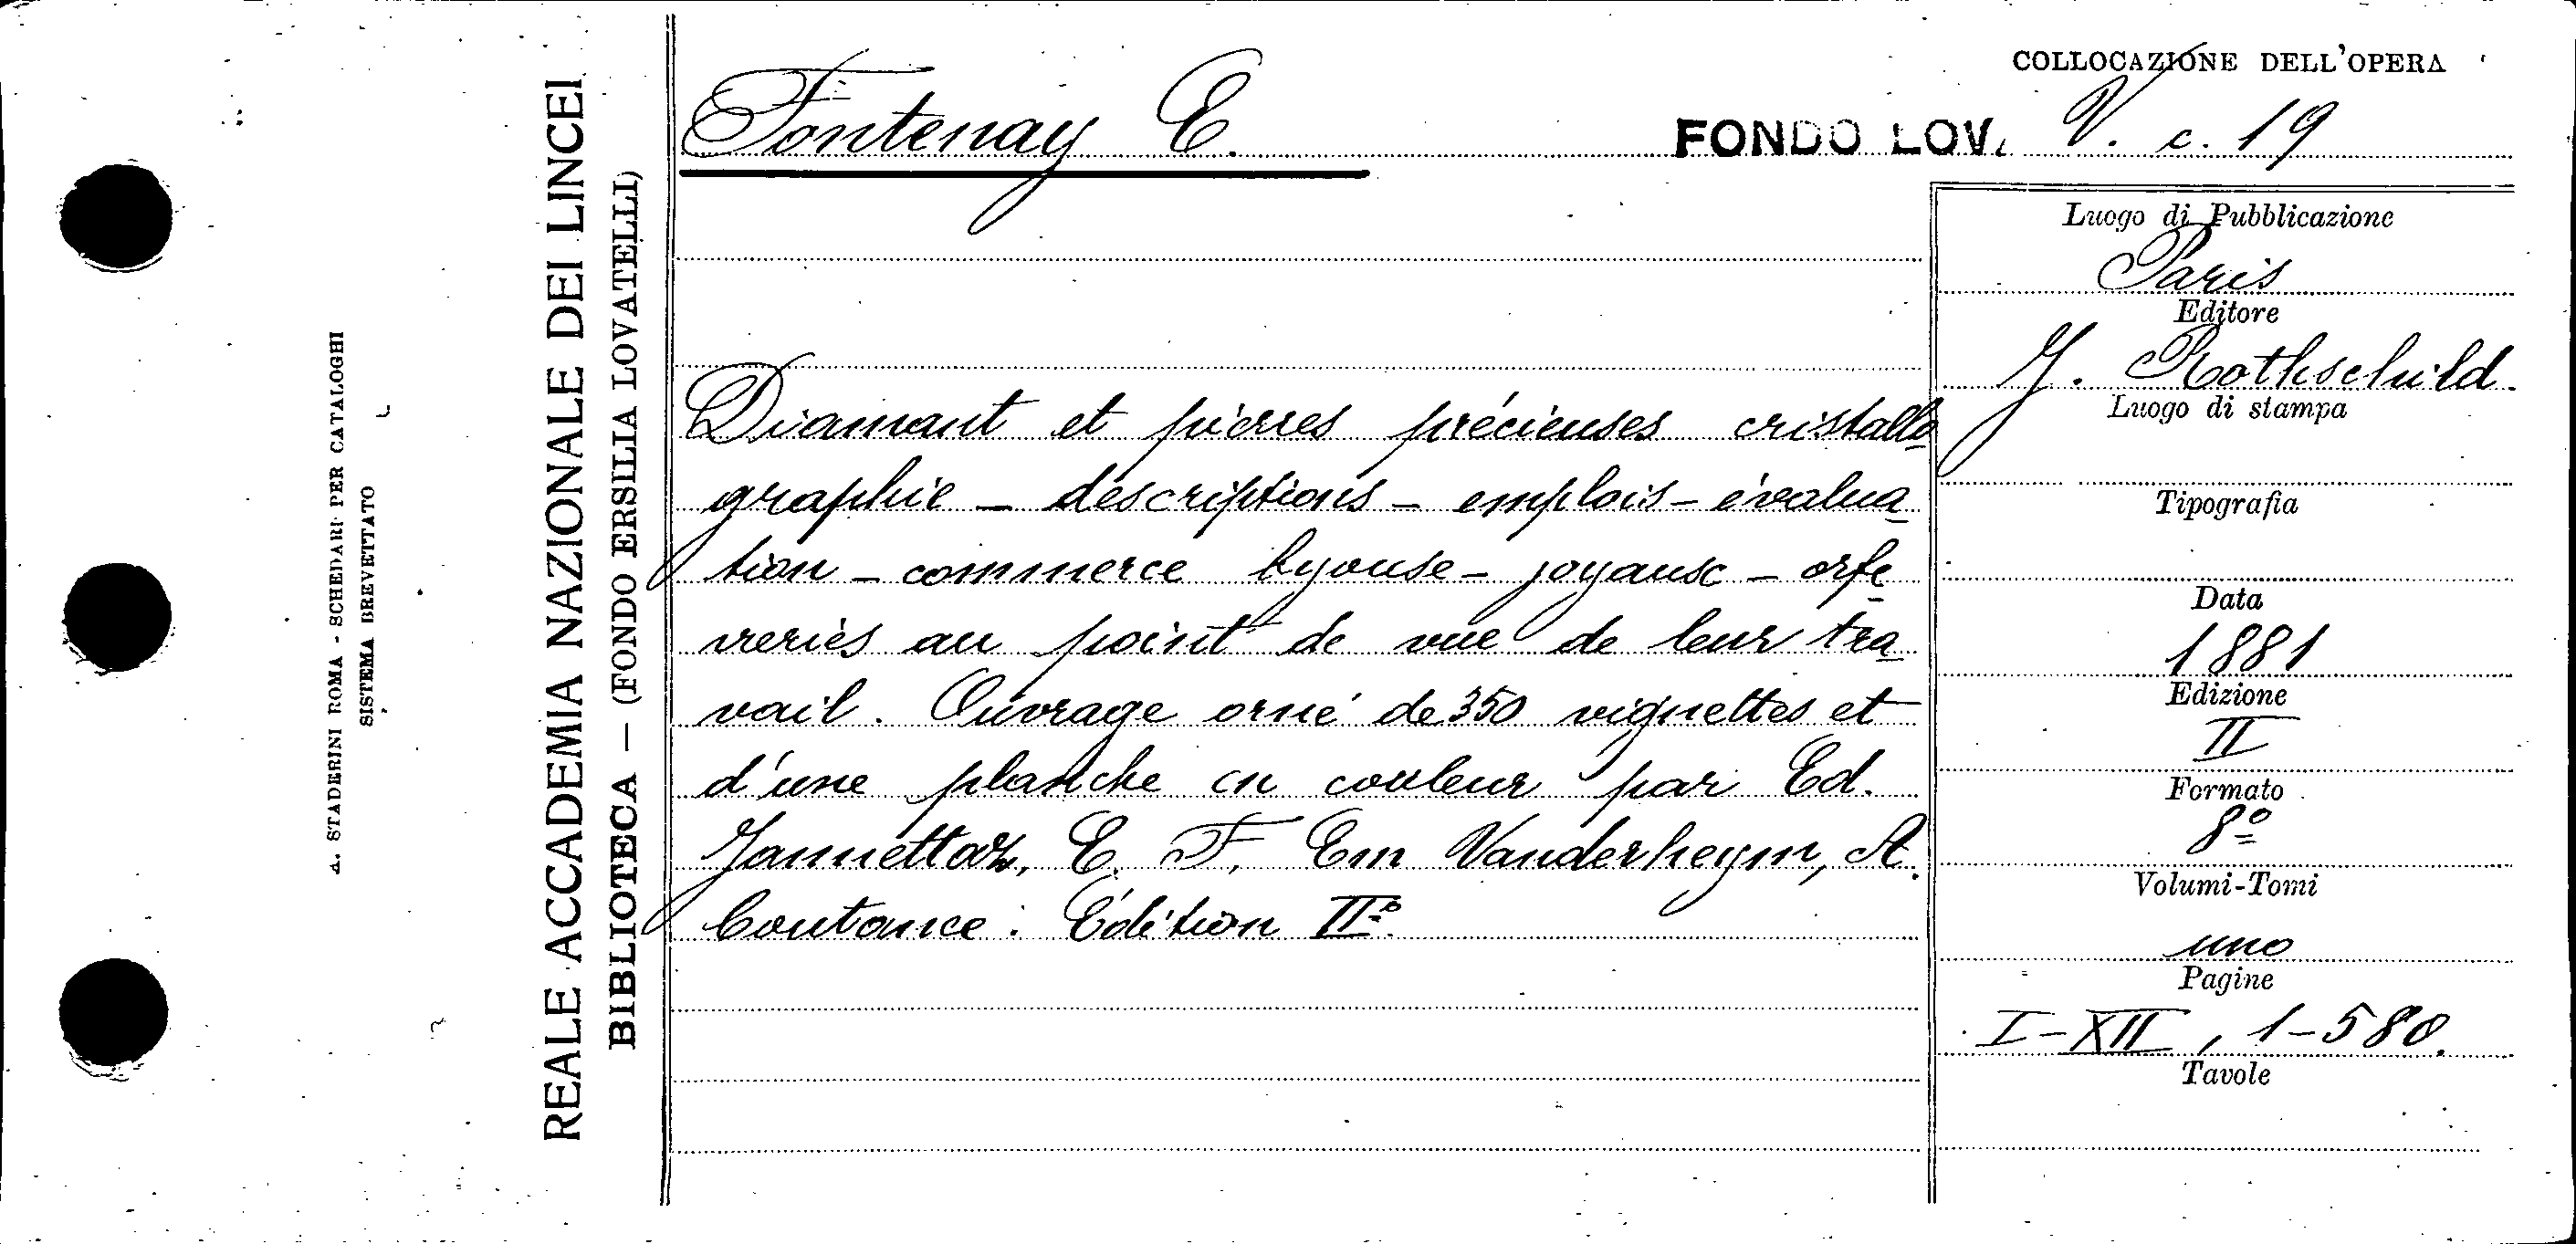 COLLOCAZIONE DELL'OPERA
Fontenay E.
FONDO LOV. V. c. 19
Diamant et pierres précieuses cristallo
graphie - descriptions - emplois - évalua
tion - commerce byouse - joyause - orfe
vreries au point de vue de leur tra
vail. Ouvrage orné de 350 vignettes et
d'une planche en couleur par Ed.
Jannettaz, E. F. Em Vanderheym, A.
Coutance. Édition IIº
Luogo di Pubblicazione
Paris
Editore
J. Rothschild.
Luogo di stampa
Tipografia
Data
1881
Edizione
II
Formato
8º
Volumi-Tomi
uno
Pagine
I-XII, 1-580.
Tavole
REALE ACCADEMIA NAZIONALE DEI LINCEI
BIBLIOTECA — (FONDO ERSILIA LOVATELLI)
A. STADERINI ROMA - SCHEDARI PER CATALOGHI
SISTEMA BREVETTATO